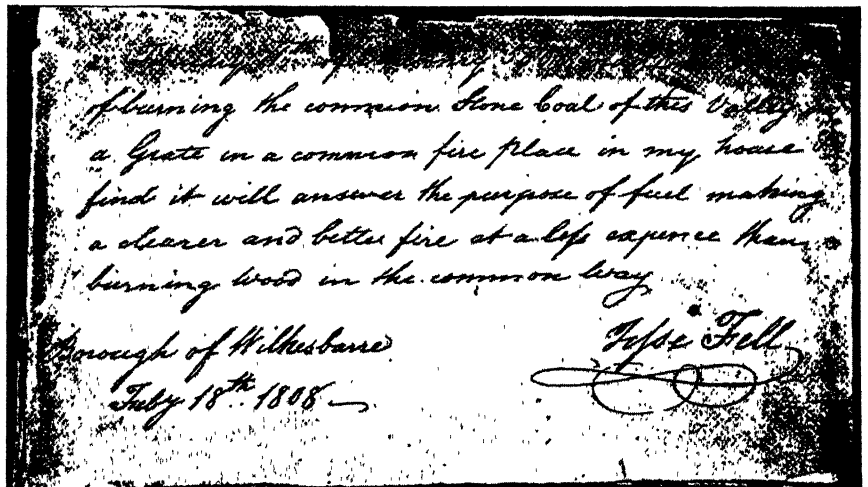 of burning the common Stone Coal of this Valley
a Grate in a common fire place in my house
find it will answer the purpose of fuel making
a clearer and better fire at a less expence than
burning wood in the common way
Jesse Fell
Borough of Wilkesbarre
Feby 18th 1808